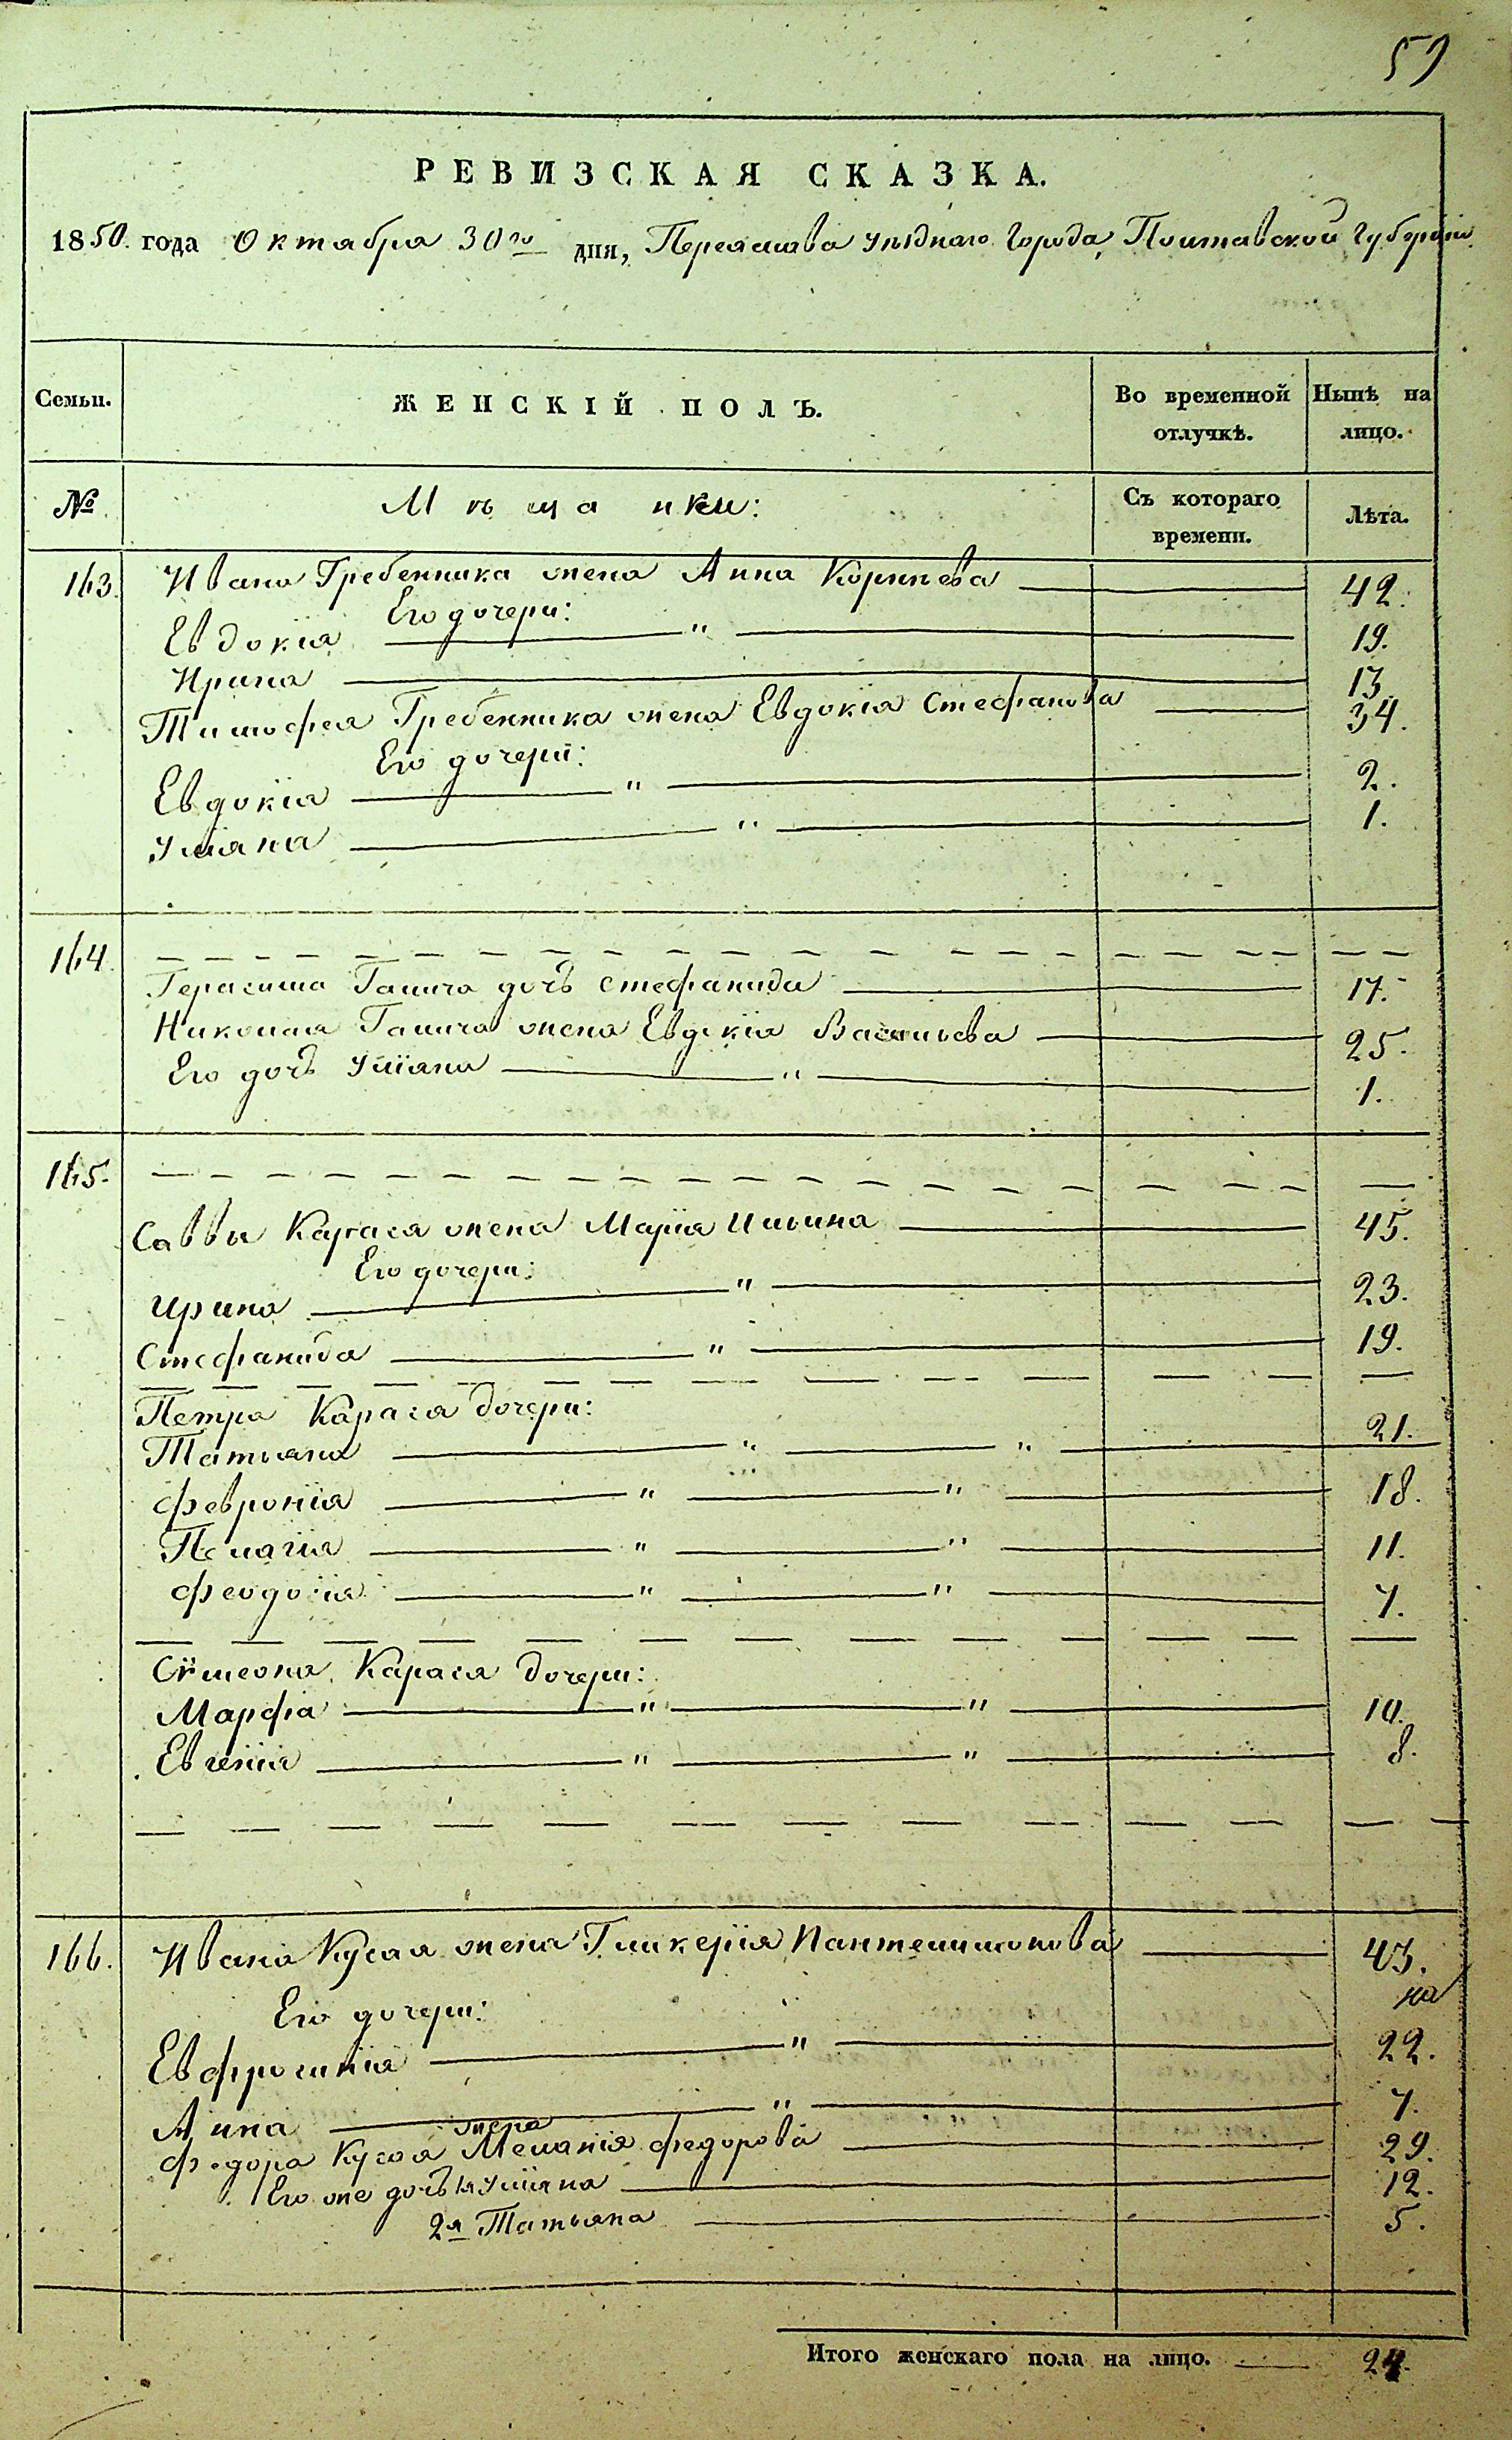 59
РЕВИЗСКАЯ СКАЗКА.
1850. года Октября 30го дня, Переяслава уѣзднаго Города, Полтавской Губерніи
Семьи.
ЖЕНСКІЙ ПОЛЪ.
Во временной отлучкѣ.
Нынѣ на лицо.
№
Мѣщанки:
Съ котораго времени.
Лѣта.
163. Ивана Гребенника жена Анна Корнѣева 42.
Его дочери:
Евдокія " 19.
Ирина 13
Тимофея Гребенника жена Евдокія Стефанова 34.
Его дочери:
Евдокія " 2.
Уліяна " 1.
164.
Герасима Галича дочь Стефанида 17.
Николая Галича жена Евдокія Васильева 25.
Его дочь Уліяна " 1.
165.
Саввы Карася жена Марія Ильина 45.
Его дочери:
Ирина " 23.
Стефанида " 19.
Петра Карася дочери:
Татьяна " " 21.
Февронія " " 18.
Пелагія " " 11.
Феодосія " " 7.
Сѵмеона Карася дочери:
Марфа " " 10.
Евгенія " " 8.
166. Ивана Кусая жена Гликерія Пантелимонова 43.
Его дочери:
Евфросинія " 22.
Анна " 7.
жена
Федора Кусая Меланія Федорова 29.
Его же дочь 1я Уліяна 12.
2я Татьяна 5.
Итого женскаго пола на лицо. 24.